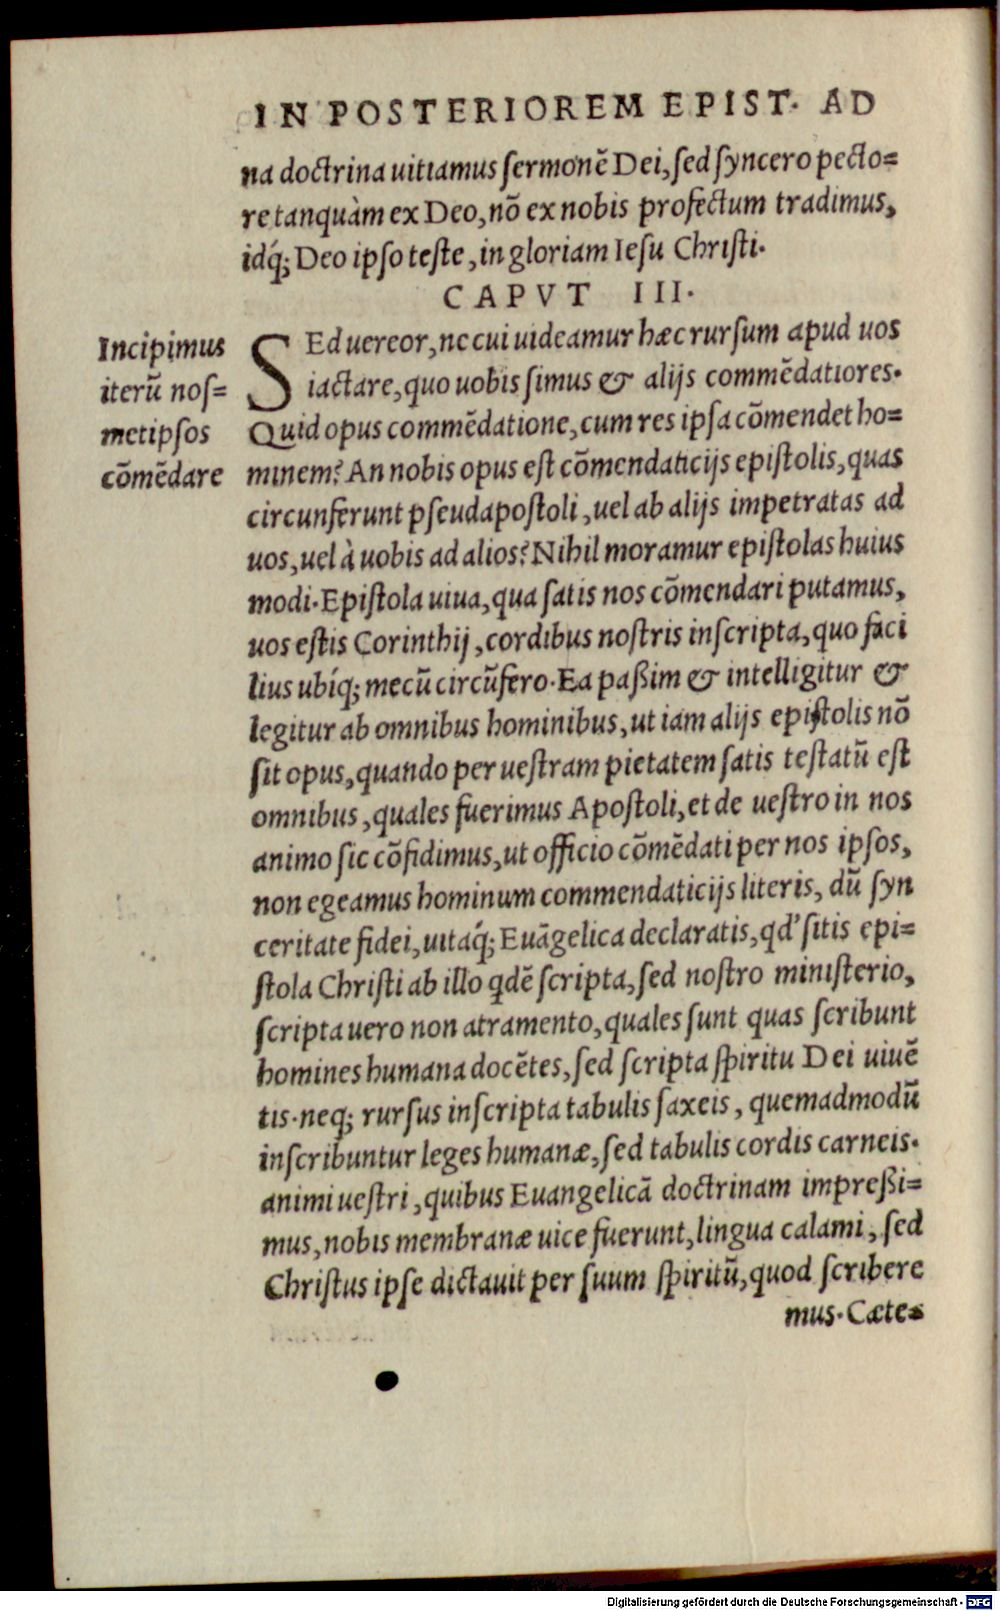 IN POSTERIOREM EPIST. AD
na doctrina uitiamus ſermonẽ Dei, ſed ſyncero pecto=
re tanquàm ex Deo, nõ ex nobis profectum tradimus,
idq́; Deo ipſo teſte, in gloriam Ieſu Chriſti.
CAPVT III.
Incipimus
iterũ noſ=
metipſos
cõmẽdare
SEd uereor, ne cui uideamur hæc rurſum apud uos
iactare, quo uobis ſimus & alijs commẽdatiores.
Quid opus commẽdatione, cum res ipſa cõmendet ho=
minem? An nobis opus eſt cõmendaticijs epiſtolis, quas
circunferunt pſeudapoſtoli, uel ab alijs impetratas ad
uos, uel à uobis ad alios? Nihil moramur epiſtolas huius
modi. Epiſtola uiua, qua ſatis nos cõmendari putamus,
uos eſtis Corinthij, cordibus noſtris inſcripta, quo faci
lius ubíq; mecũ circũfero. Ea paßim & intelligitur &
legitur ab omnibus hominibus, ut iam alijs epiſtolis nõ
ſit opus, quando per ueſtram pietatem ſatis teſtatũ eſt
omnibus, quales fuerimus Apoſtoli, et de ueſtro in nos
animo ſic cõfidimus, ut officio cõmẽdati per nos ipſos,
non egeamus hominum commendaticijs literis, dũ ſyn
ceritate fidei, uitaq́; Euãgelica declaratis, qd' ſitis epi=
ſtola Chriſti ab illo qdẽ ſcripta, ſed noſtro miniſterio,
ſcripta uero non atramento, quales ſunt quas ſcribunt
homines humana docẽtes, ſed ſcripta ſpiritu Dei uiuẽ
tis. neq; rurſus inſcripta tabulis ſaxeis, quemadmodũ
inſcribuntur leges humanæ, ſed tabulis cordis carneis.
animi ueſtri, quibus Euangelicã doctrinam impreßi=
mus, nobis membranæ uice fuerunt, lingua calami, ſed
Chriſtus ipſe dictauit per ſuum ſpiritũ, quod ſcribere
mus. Cæte=
Digitalisierung gefördert durch die Deutsche Forschungsgemeinschaft - DFG